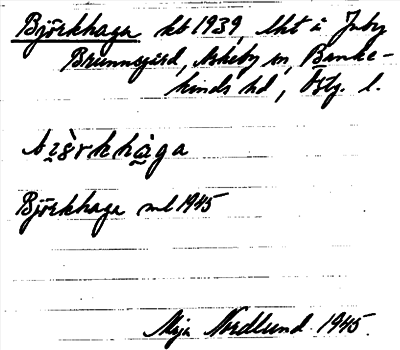 Björkhaga kb 1939, lht å Juby
Brunnsgård, Askeby sn, Banke-
kinds hd, Östg. l.
bɪ̀ö̀rkhàga
Björkhaga ml 1945
Maja Nordlund 1945.